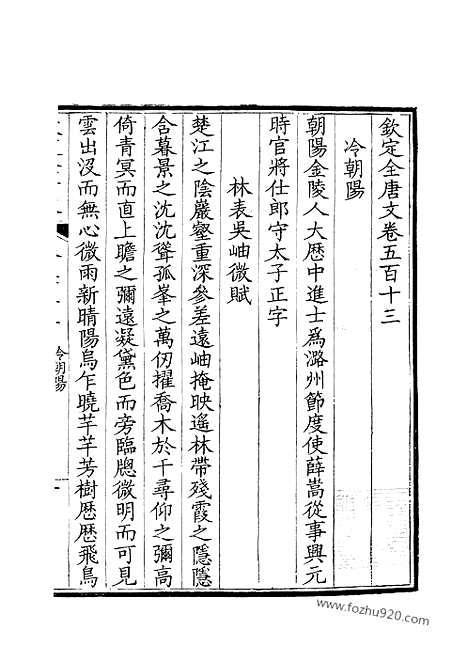 欽定全唐文卷五百十三
冷朝陽
朝陽金陵人大歴中進士爲潞州節度使薛嵩從事興元
時官將仕郎守太子正字
林表吳岫微賦
楚江之陰巖壑重深參差遠岫掩映遙林帶殘霞之隱隱
含暮景之沈沈聳孤峯之萬仞擢喬木於千尋仰之彌高
倚青冥而直上瞻之彌遠凝黛色而旁臨牕微明而可見
雲出沒而無心微雨新晴陽烏乍曉芊芊芳樹歴歴飛鳥
冷朝陽
一
www.fozhu920.com